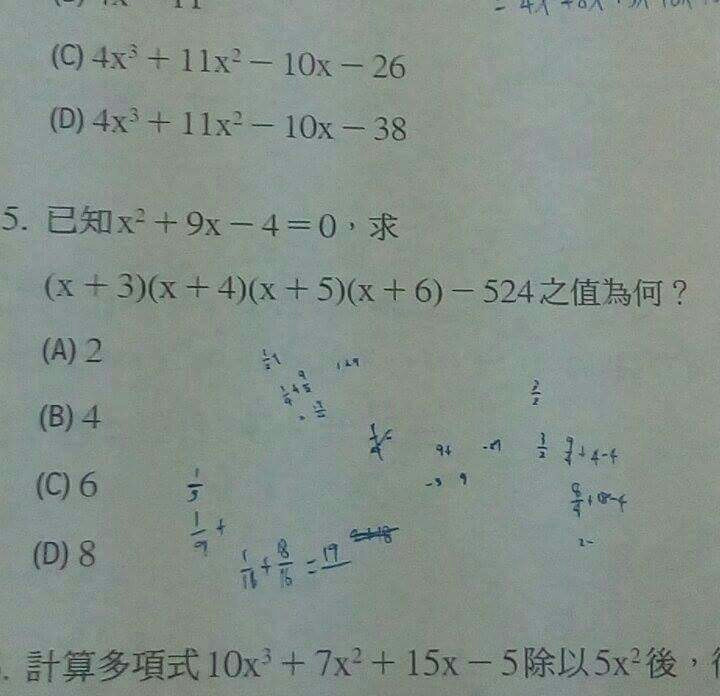 (C) 4x³ + 11x² − 10x − 26
(D) 4x³ + 11x² − 10x − 38
5. 已知x² + 9x − 4 = 0，求
(x + 3)(x + 4)(x + 5)(x + 6) − 524之值為何？
(A) 2
(B) 4
(C) 6
(D) 8
1/5
1/9 +
1/16 + 8/16 = 19
3/2 9/4 + 4-4
計算多項式10x³ + 7x² + 15x − 5除以5x²後，